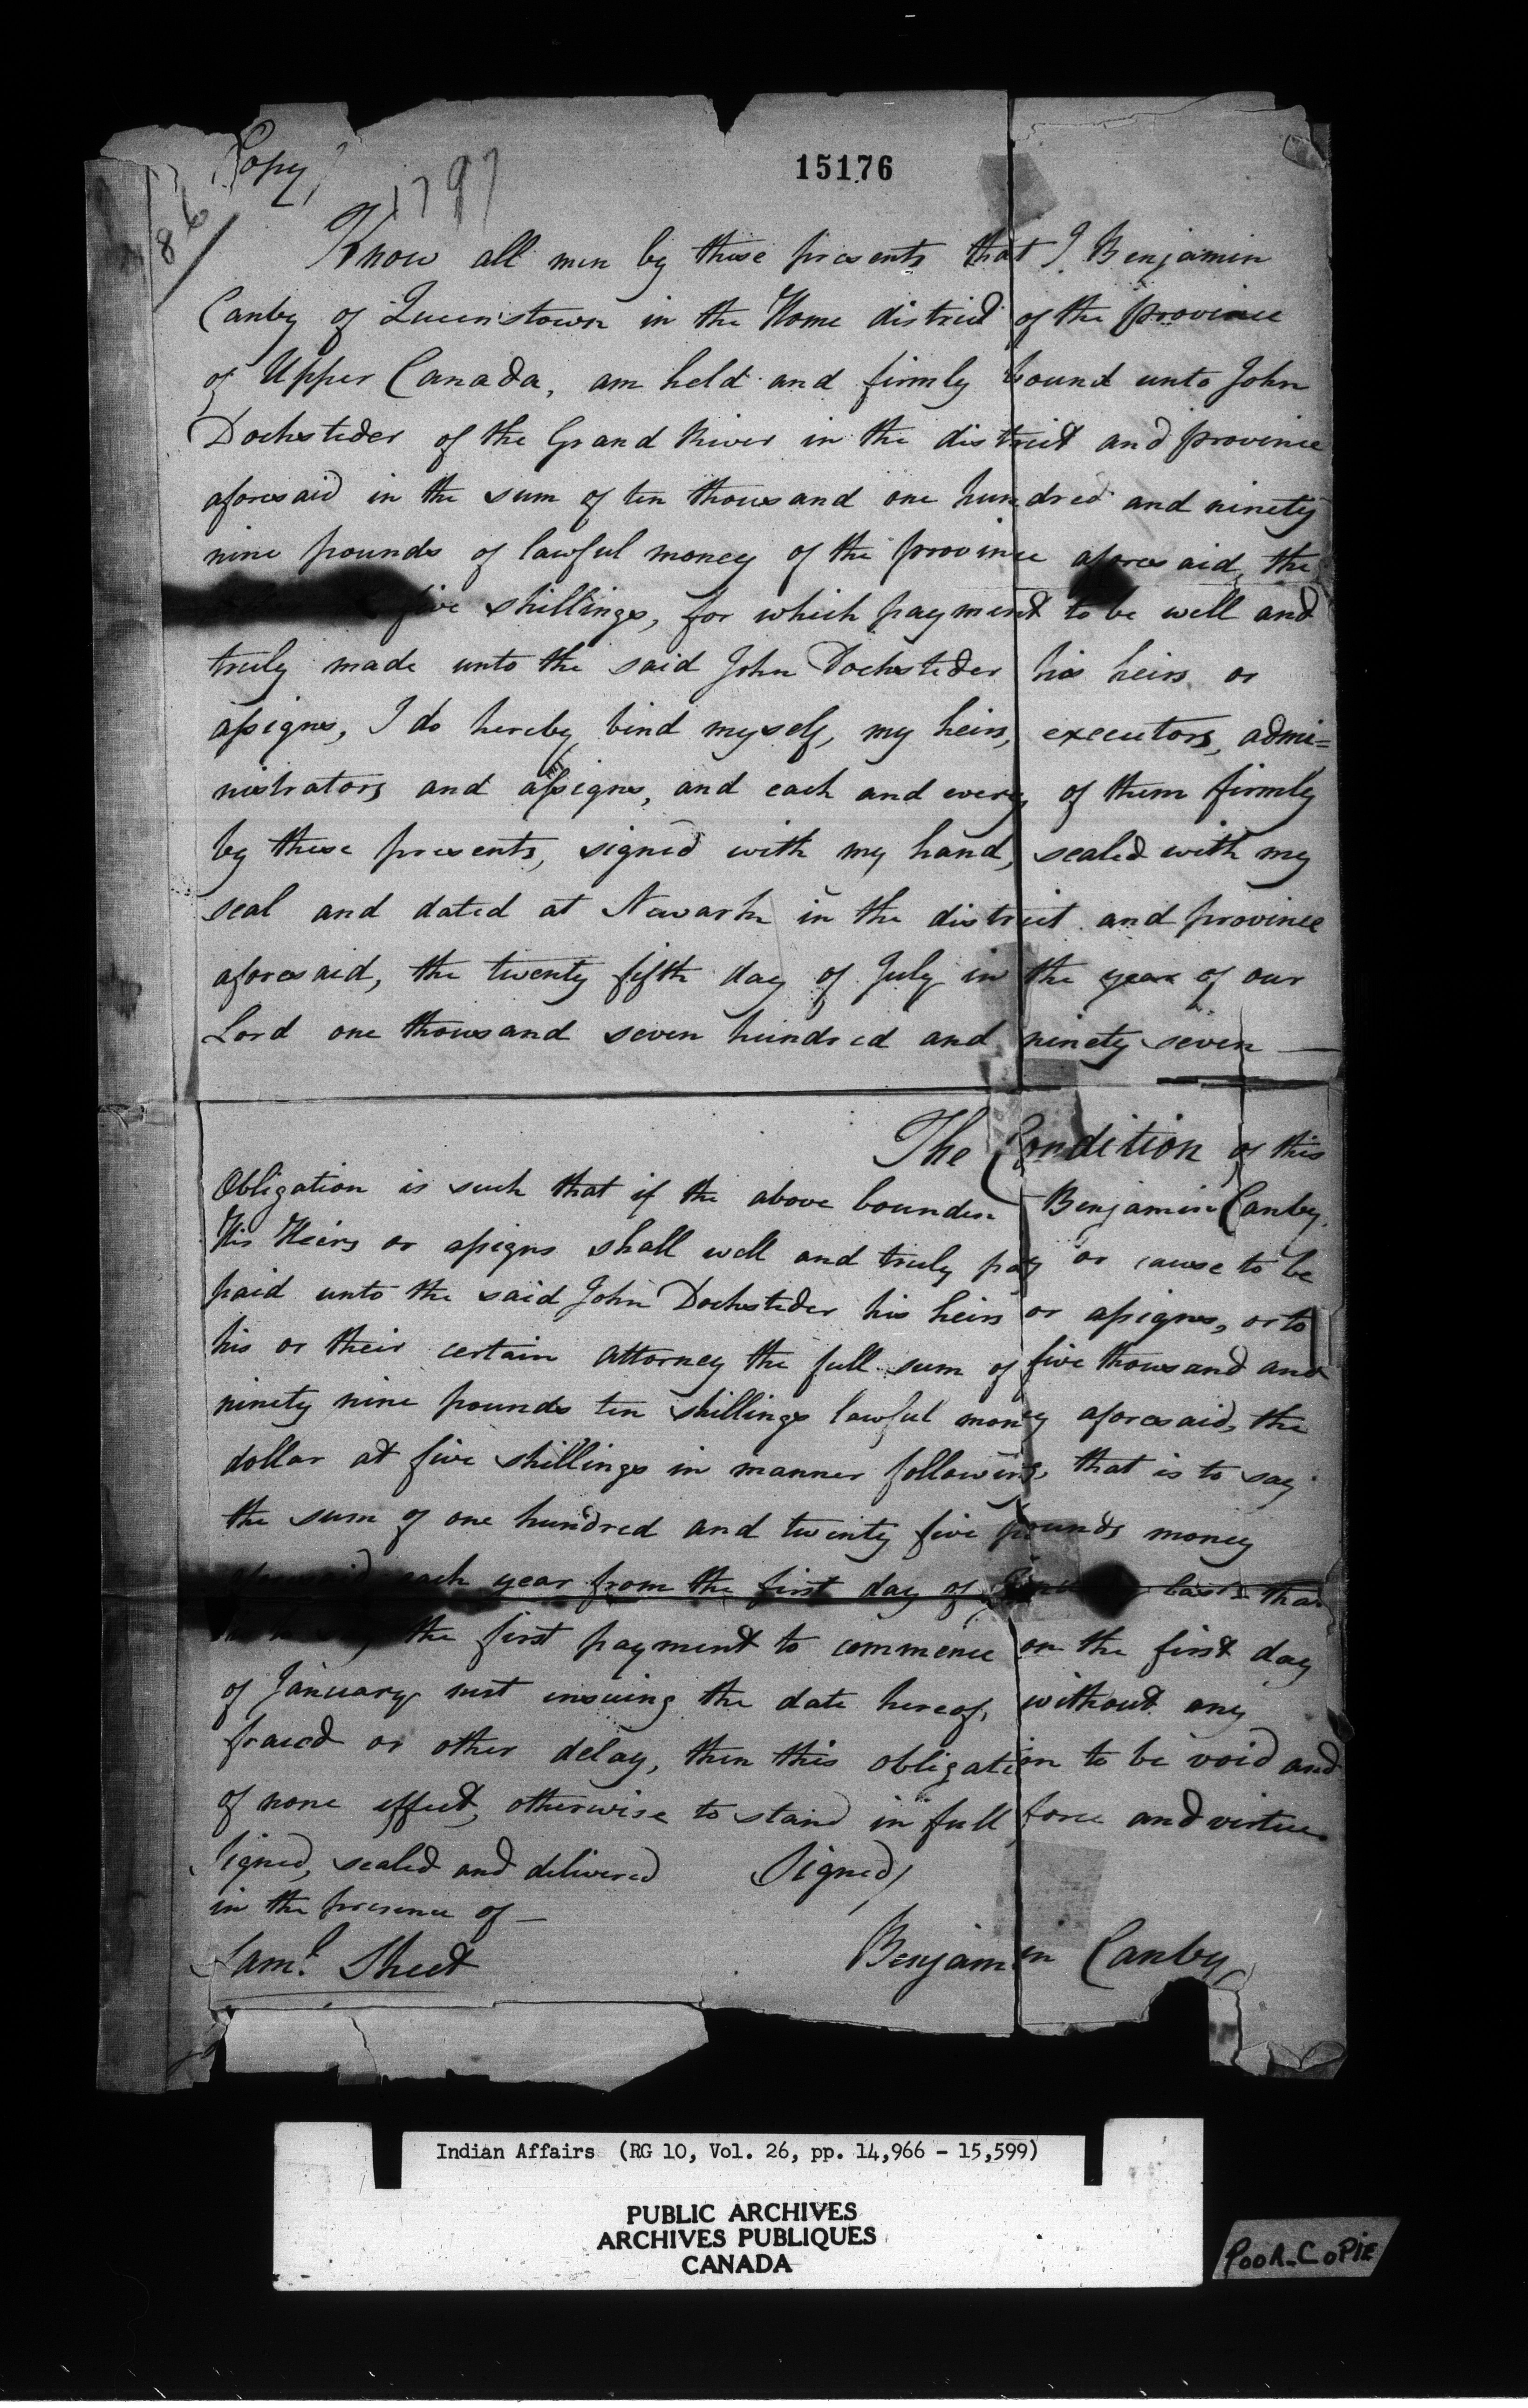 Copy
1797
15176
86
Know all men by these presents that I Benjamin
Canby of Queenstown in the Home district of the province
of Upper Canada, am held and firmly bound unto John
Dochsteder of the Grand River in the district and province
aforesaid in the sum of ten thousand one hundred and ninety
nine pounds of lawful money of the province aforesaid, the
five shillings, for which payment to be well and
truly made unto the said John Dochsteder his heirs or
assigns, I do hereby bind myself, my heirs, executors, admi=
nistrators and assigns, and each and every of them firmly
by these presents, signed with my hand, sealed with my
seal and dated at Newark in the district and province
aforesaid, the twenty fifth day of July in the year of our
Lord one thousand seven hundred and ninety seven —
The Condition of this
Obligation is such that if the above bounden Benjamin Canby
His Heirs or assigns shall well and truly pay or cause to be
paid unto the said John Dochsteder his heirs or assigns, or to
his or their certain attorney the full sum of five thousand and
ninety nine pounds ten shillings lawful money aforesaid, the
dollar at five shillings in manner following, that is to say
the sum of one hundred and twenty five pounds money
each year from the first day of
the first payment to commence on the first day
of January next ensuing the date hereof, without any
fraud or other delay, then this obligation to be void and
of none effect, otherwise to stand in full force and virtue.
Signed, sealed and delivered Signed/
in the presence of —
Saml. Street Benjamin Canby
Indian Affairs (RG 10, Vol. 26, pp. 14,966 - 15,599)
PUBLIC ARCHIVES
ARCHIVES PUBLIQUES
CANADA
POOR COPIE